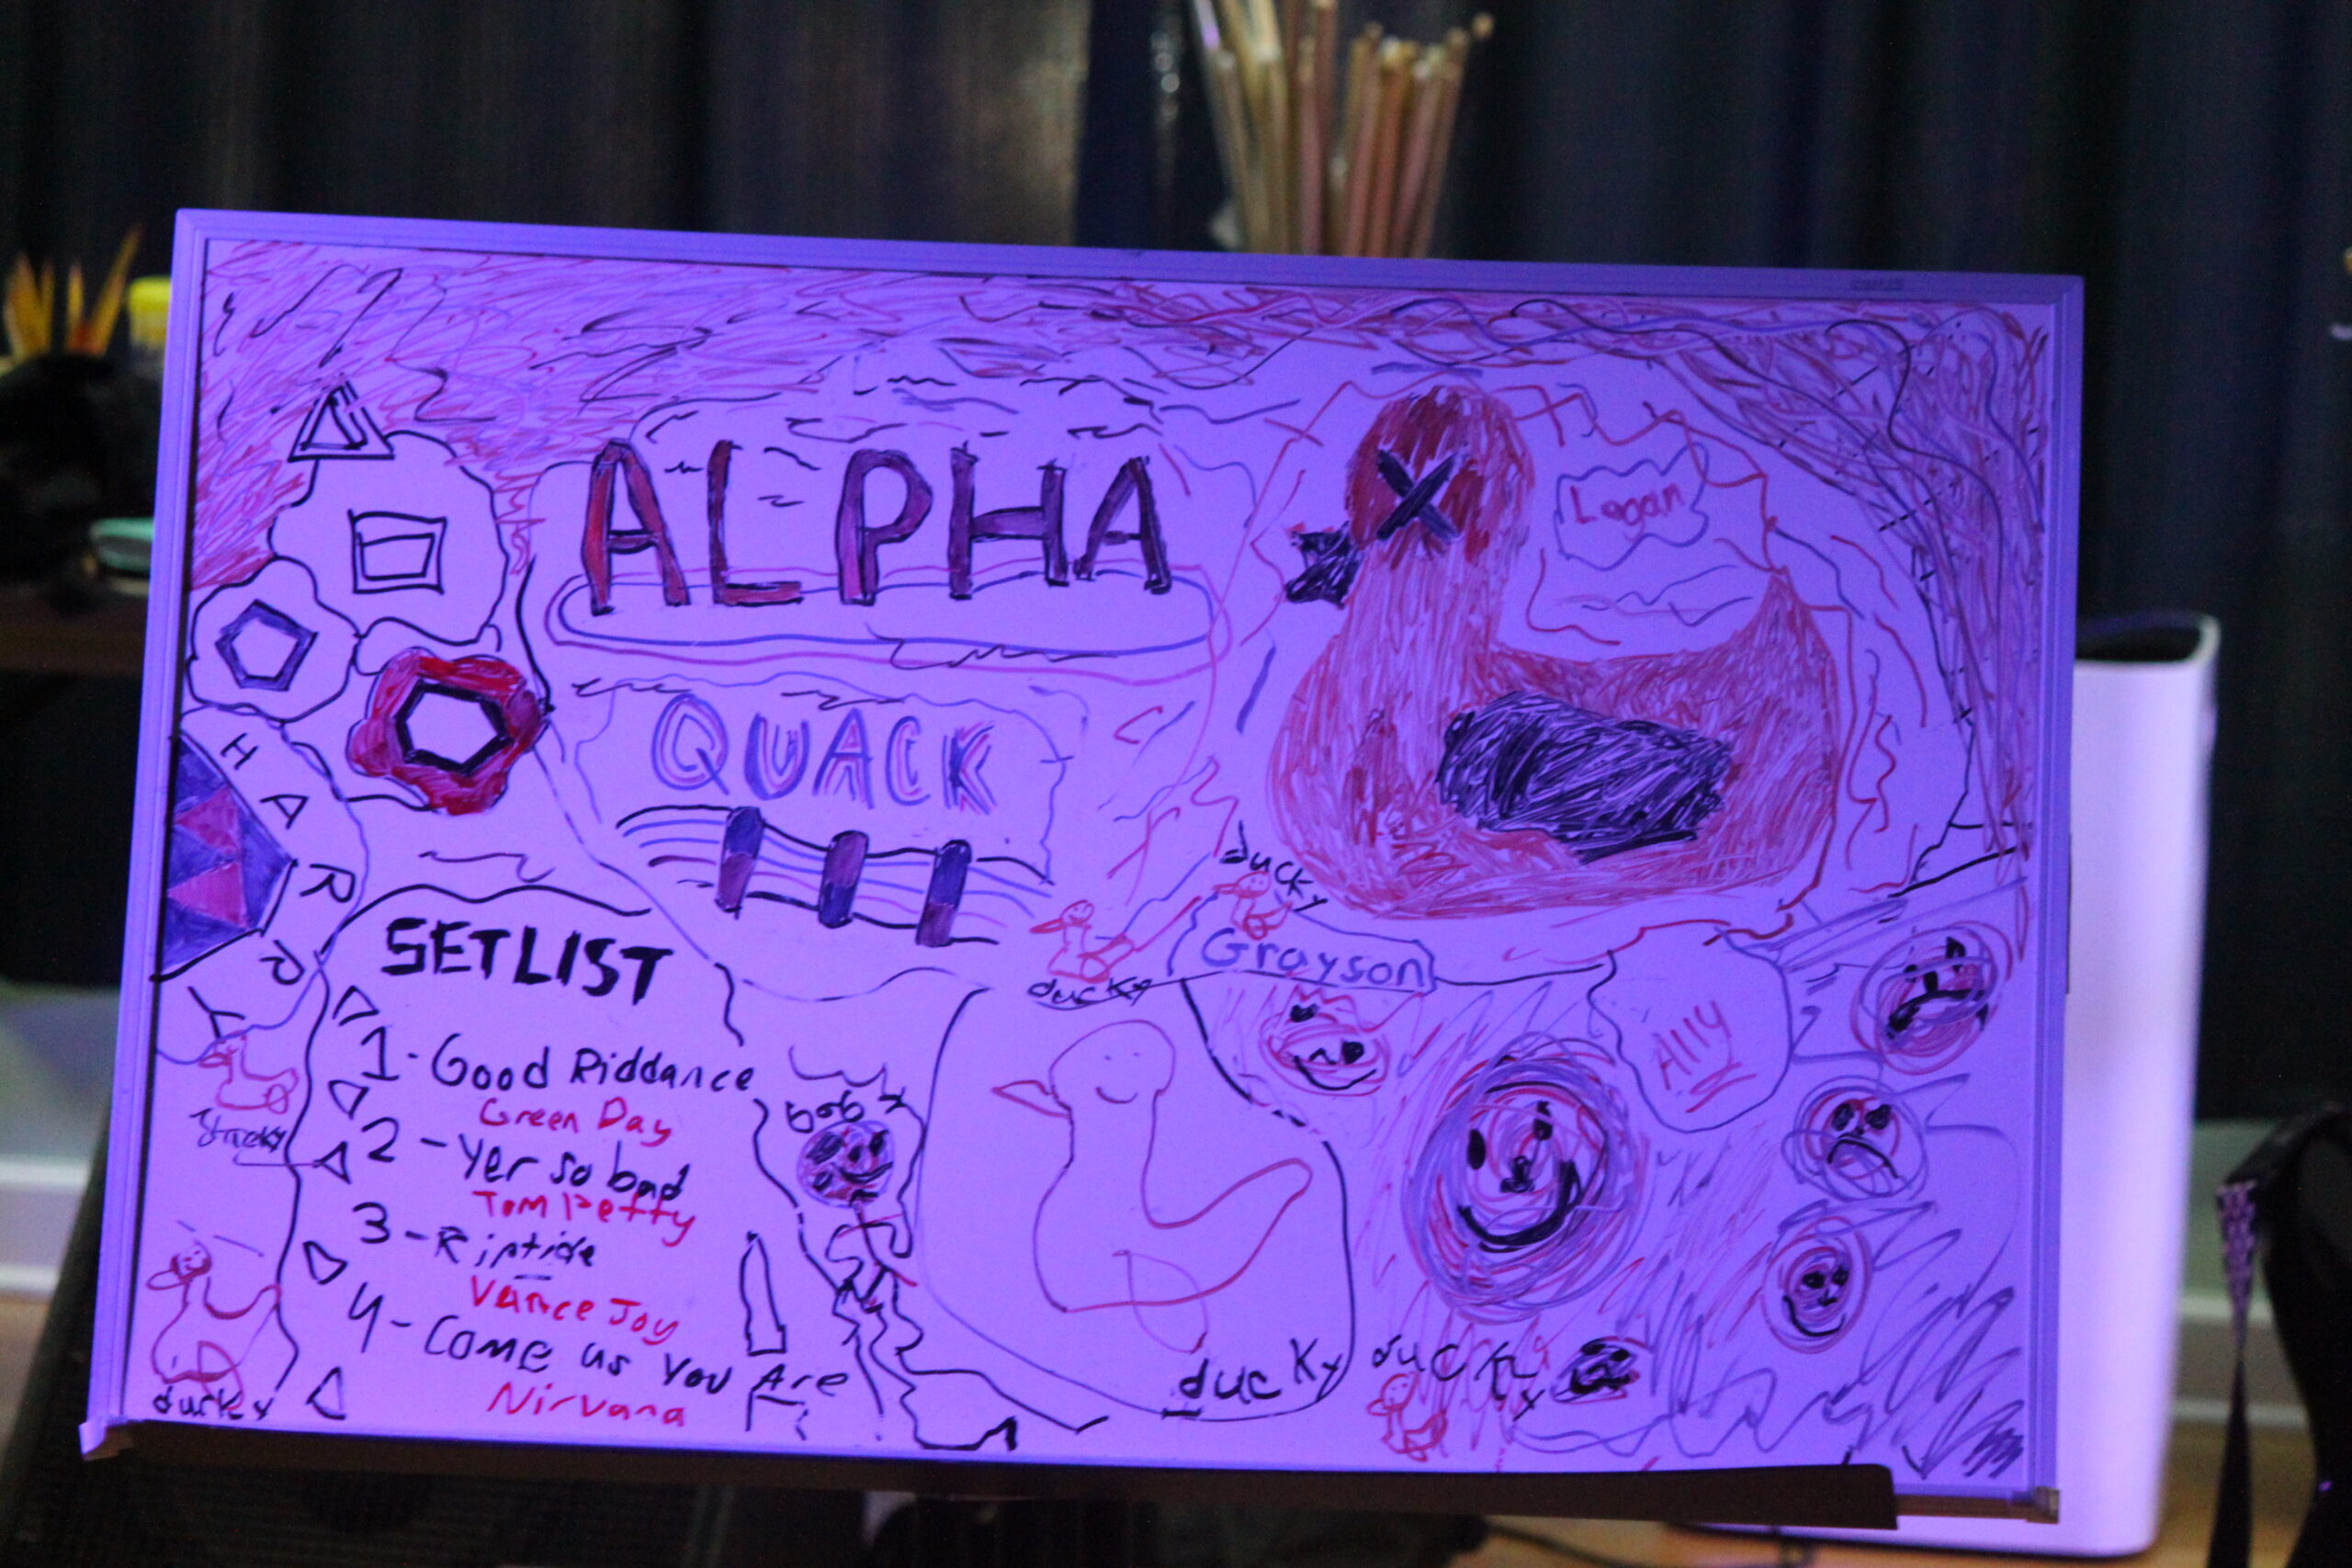 ALPHA
Logan
QUACK
HARRY
ducky
ducky
Grayson
Ally
SETLIST
1-Good Riddance
Green Day
2-Yer so bad
Tom Petty
3-Riptide
Vance Joy
4-Come as You Are
Nirvana
bob
ducky
ducky
ducky